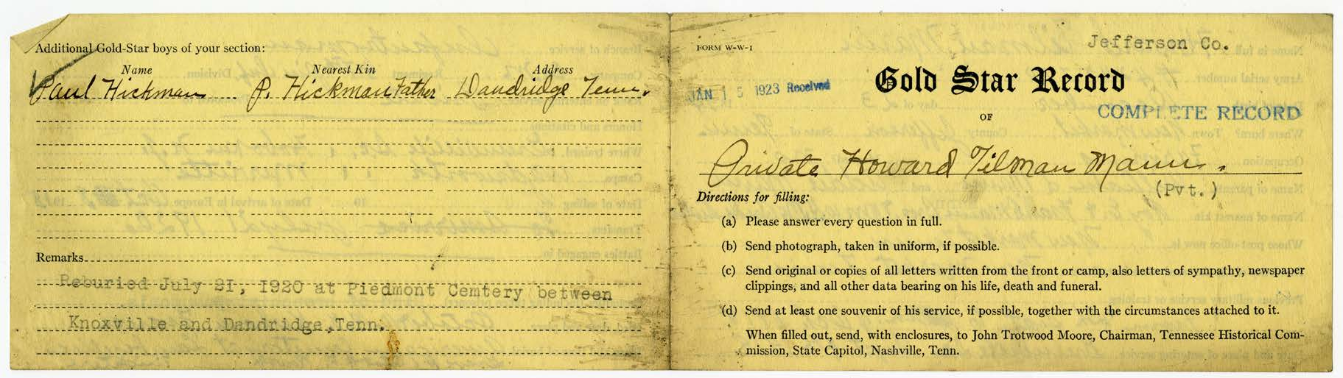 Additional Gold-Star boys of your section:
Name Nearest Kin Address
Paul Hickman P. Hickman Father Dandridge Tenn.
Remarks
Reburied July 21, 1920 at Piedmont Cemtery between
Knoxville and Dandridge,Tenn.
FORM W-W-1
Jefferson Co.
Gold Star Record
JAN 15 1923 Received
OF
COMPLETE RECORD
Private Howard Tilman Mann.
(Pvt.)
Directions for filling:
(a) Please answer every question in full.
(b) Send photograph, taken in uniform, if possible.
(c) Send original or copies of all letters written from the front or camp, also letters of sympathy, newspaper
clippings, and all other data bearing on his life, death and funeral.
(d) Send at least one souvenir of his service, if possible, together with the circumstances attached to it.
When filled out, send, with enclosures, to John Trotwood Moore, Chairman, Tennessee Historical Com-
mission, State Capitol, Nashville, Tenn.